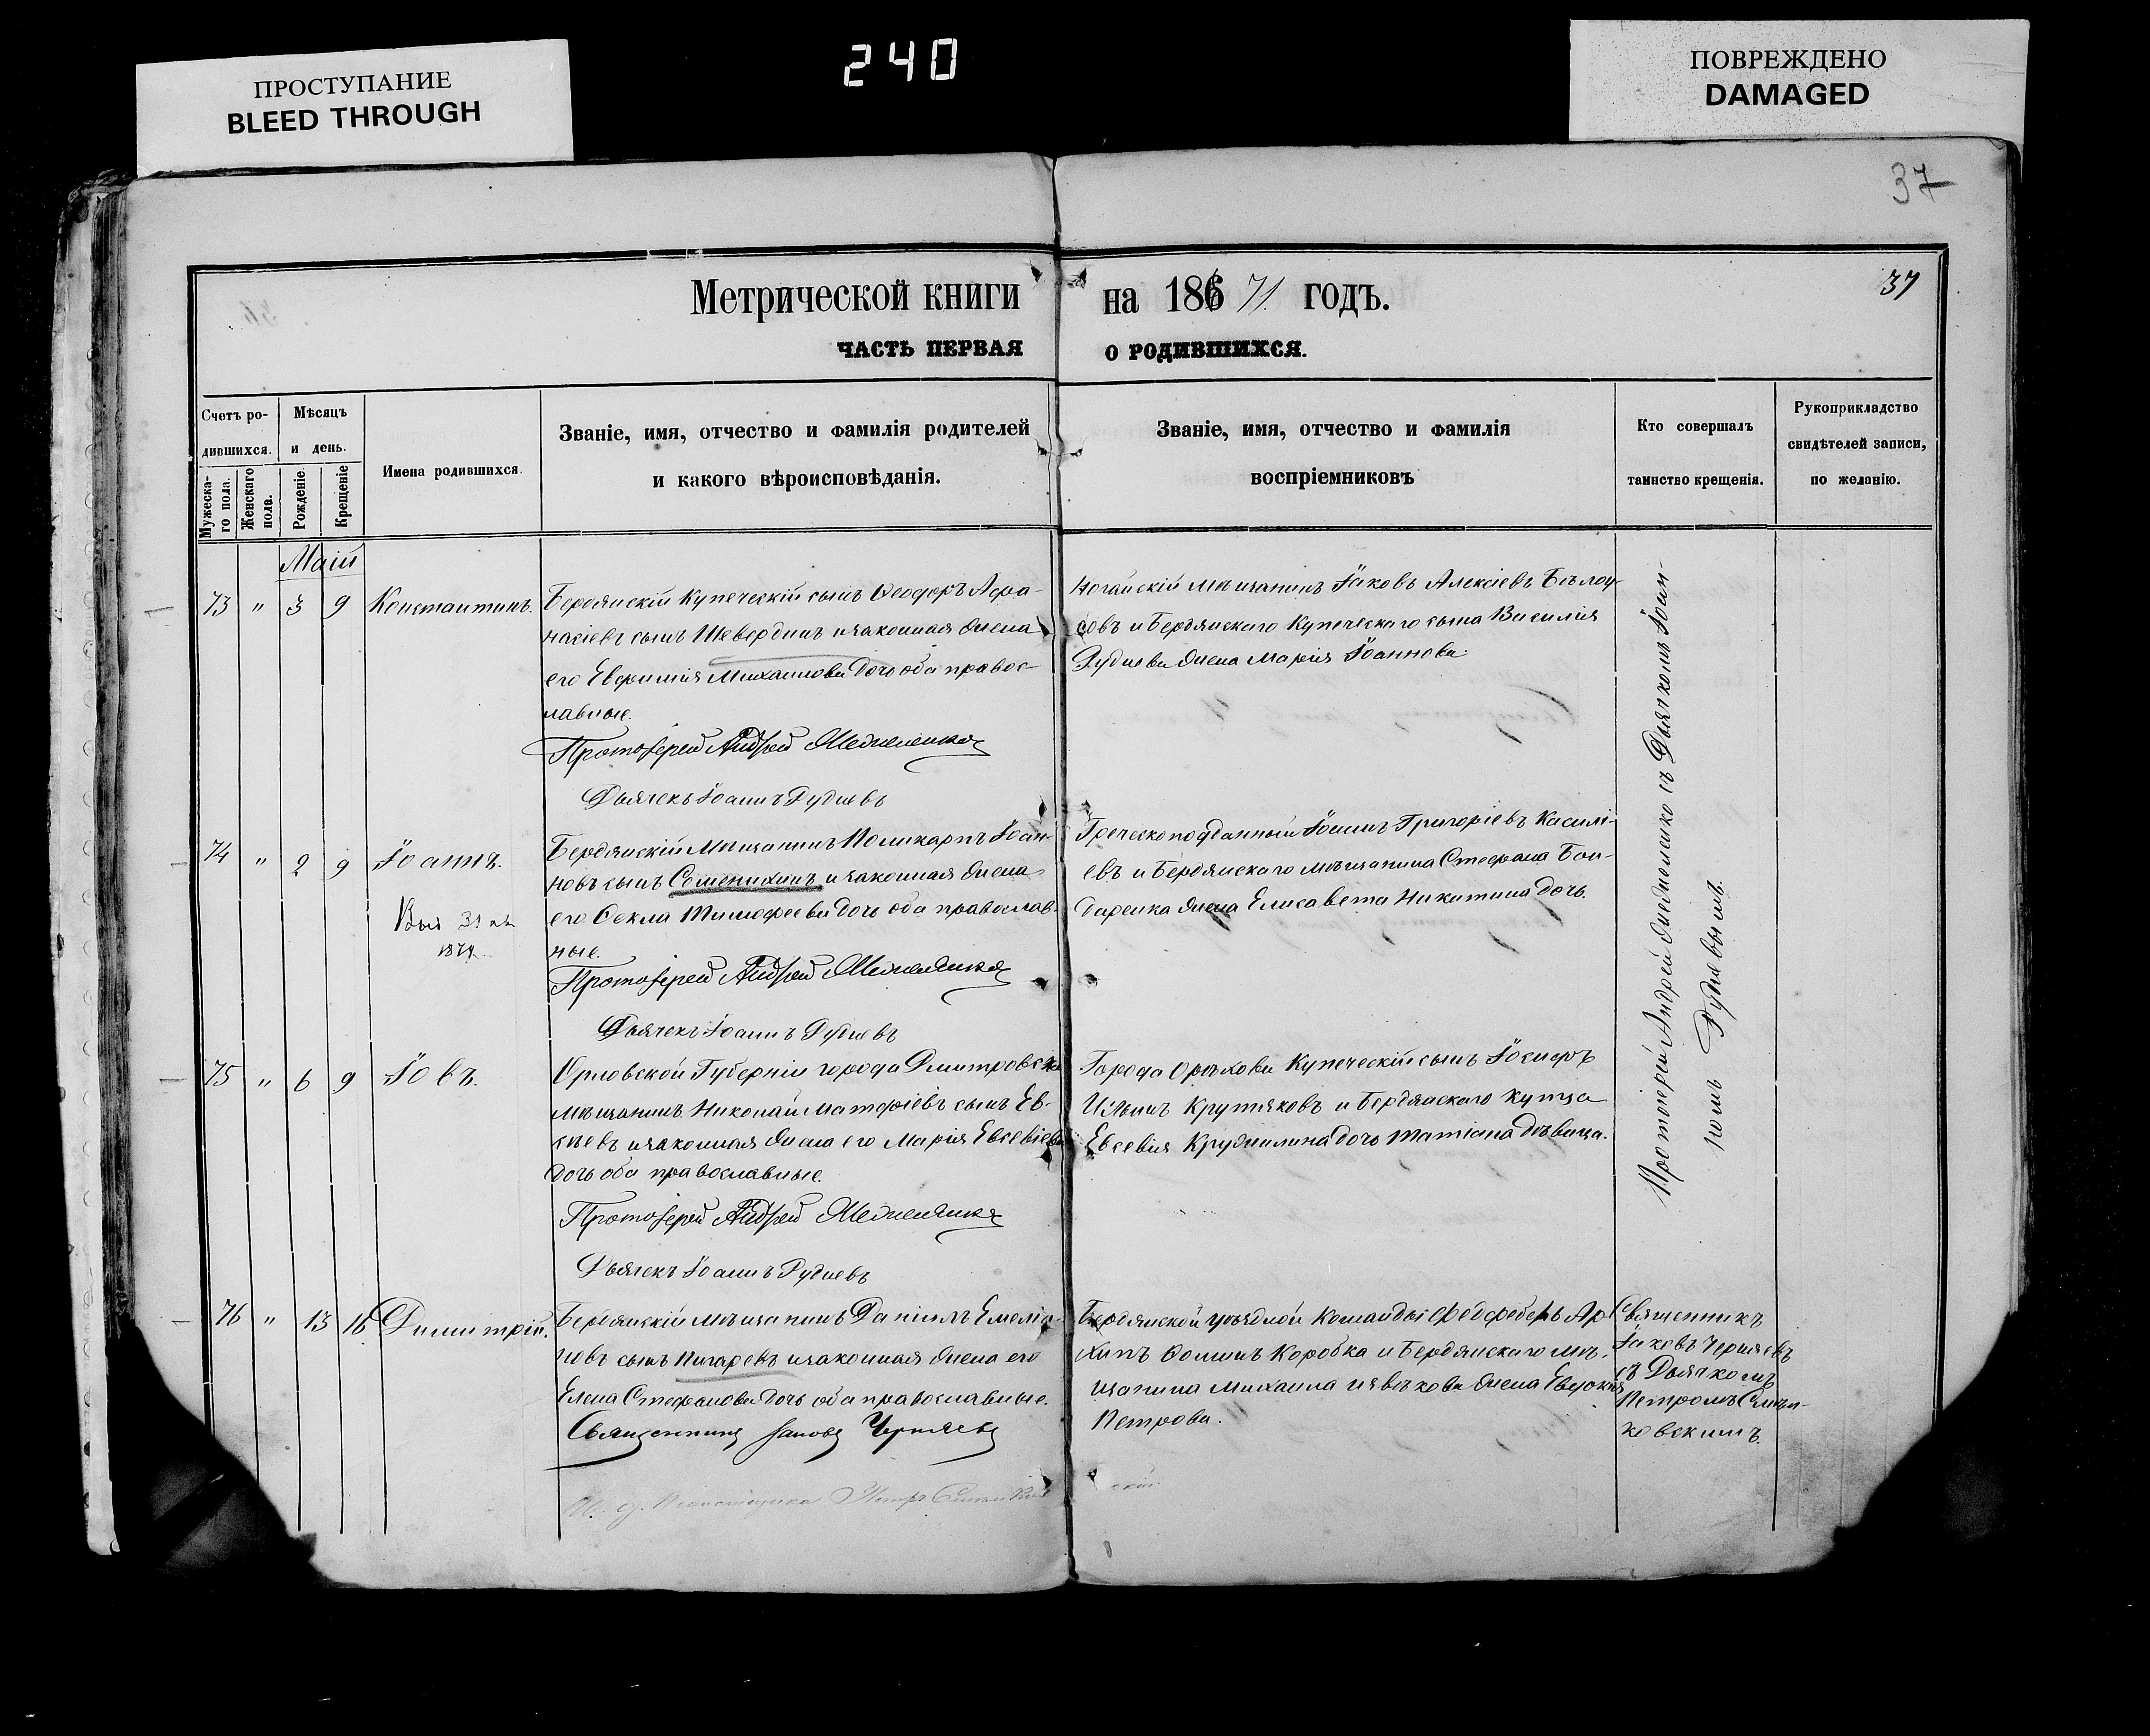 ПРОСТУПАНИЕ
BLEED THROUGH
240
ПОВРЕЖДЕНО
DAMAGED
37
37
Метрической книги на 186 71 годъ.
ЧАСТЬ ПЕРВАЯ О РОДИВШИХСЯ.
Счетъ ро-
дившихся.
Мужеска-
го пола.
Женскаго
пола.
Мѣсяцъ
и день.
Рожденіе.
Крещеніе
Имена родившихся.
Званіе, имя, отчество и фамилія родителей
и какого вѣроисповѣданія.
Званіе, имя, отчество и фамилія
воспріемниковъ
Кто совершалъ
таинство крещенія.
Рукоприкладство
свидѣтелей записи,
по желанію.
Маій
73 " 3 9 Константинъ.
Бердянскій Купеческій сынъ Ѳеодоръ Афа-
насіевъ сынъ Шевердинъ и законная жена
его Евфимія Михаилова дочь оба правос-
лавные.
Протоіерей Андрей
Дьячекъ Іоаннъ Рудневъ
Ногайскій мѣщанинъ Іаковъ Алексіевъ Бѣлоу-
совъ и Бердянскаго Купеческаго сына Василія
Руднева жена Марія Іоаннова.
74 " 2 9 Іоаннъ.
1874
Бердянскій Мѣщанинъ Поликарпъ Іоан-
новъ сынъ Семенихинъ и законная жена
его Ѳекла Тимофеева дочь оба православ-
ные.
Протоіерей Андрей
Дьячекъ Іоаннъ Рудневъ
Греческоподданный Іоаннъ Григоріевъ Касилі-
евъ и Бердянскаго мѣщанина Стефана Бон-
даренка жена Елисавета Никитина дочь.
75 " 6 9 Іовъ.
Орловской Губерніи города Дмитровска
мѣщанинъ Николай Матфіевъ сынъ Ев-
сѣевъ и законная жена его Марія Евсевіева
дочь оба православные.
Протоіерей Андрей
Дьячекъ Іоаннъ Рудневъ
Города Орѣхова Купеческій сынъ Іосифъ
Ильинъ Крутяковъ и Бердянскаго купца
Евсевія Кружилина дочь Татіана дѣвица.
Протоіерей Андрей съ Дьячкомъ Іоан-
номъ Рудневымъ.
76 " 13 16 Димитрій.
Бердянскій мѣщанинъ Даніилъ Емеліа-
новъ сынъ Писаревъ и законная жена его
Елена Стефанова дочь оба православные.
Священникъ Іаковъ Черняевъ
И. д. Псаломщика Петръ
Бердянской уѣздной Команды Фельдфебель Ар-
хипъ Ѳоминъ Коробка и Бердянскаго мѣ-
щанина Михаила жена Евдокія
Петрова.
Священникъ
Іаковъ Черняевъ
съ Дьячкомъ
Петромъ
ковскимъ.